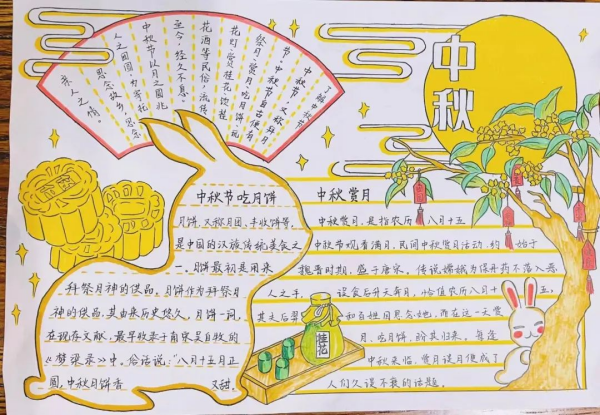 中秋
了解中秋节
中秋节，又称拜月
节。中秋节自古便有
祭月、赏月、吃月饼、玩
花灯、赏桂花、饮桂
花酒等民俗，流传
至今，经久不息。
中秋节以月之圆兆
人之团圆，为寄托
思念故乡，思念
亲人之情。
中秋节吃月饼
月饼，又称月团、丰收饼等，
是中国的汉族传统美食之
一。月饼最初是用来
拜祭月神的供品，月饼作为拜祭月
神的供品，其由来历史悠久，月饼一词，
在现存文献，最早收录于南宋吴自牧的
《梦粱录》中。俗话说："八月十五月正
圆，中秋月饼香又甜。
中秋赏月
中秋赏月，是指农历八月十五
中秋节观看满月，民间中秋赏月活动，约始于
魏晋时期，盛于唐宋，传说嫦娥为保丹药不落入恶
人之手，误食后升天奔月，恰值农历八月十五，
其丈夫后羿和百姓因思念她，所在这一天赏
月、吃月饼，盼其归来，每逢
中秋来临，赏月谈月便成了
人们久谈不衰的话题。
桂花